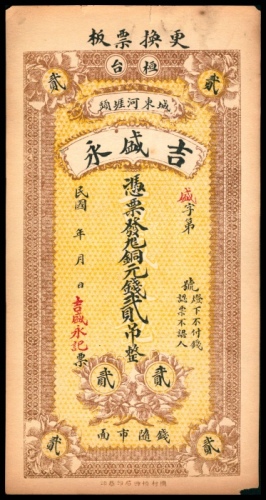 更換票板
桓台
貳
貳
城東河涯頭
吉盛永
盛字第 號
燈下不付錢
認票不認人
憑票發兌銅元錢貳吊整
民國 年 月 日 吉盛永記票
貳
貳
錢隨市面
貳
貳